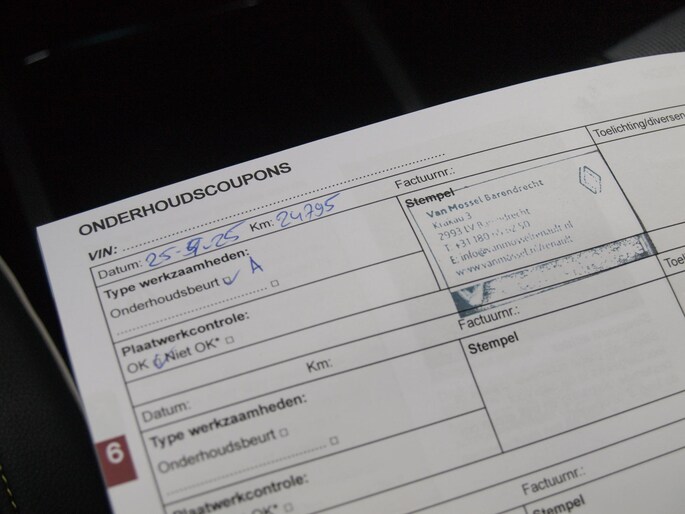 ONDERHOUDSCOUPONS
VIN:
Factuurnr.:
Toelichting/diversen
Datum: 25-9-25 Km: 24795
Stempel
Van Mossel Barendrecht
Krakau 3
2993 LV Barendrecht
T. +31 180
E. info@vanmosselrenault.nl
www.vanmossel.nl/renault
Type werkzaamheden:
Onderhoudsbeurt A
Plaatwerkcontrole:
OK Niet OK*
Factuurnr.:
Toeli
Datum: Km:
Stempel
Type werkzaamheden:
Onderhoudsbeurt
6
Plaatwerkcontrole:
OK*
Factuurnr.:
Stempel